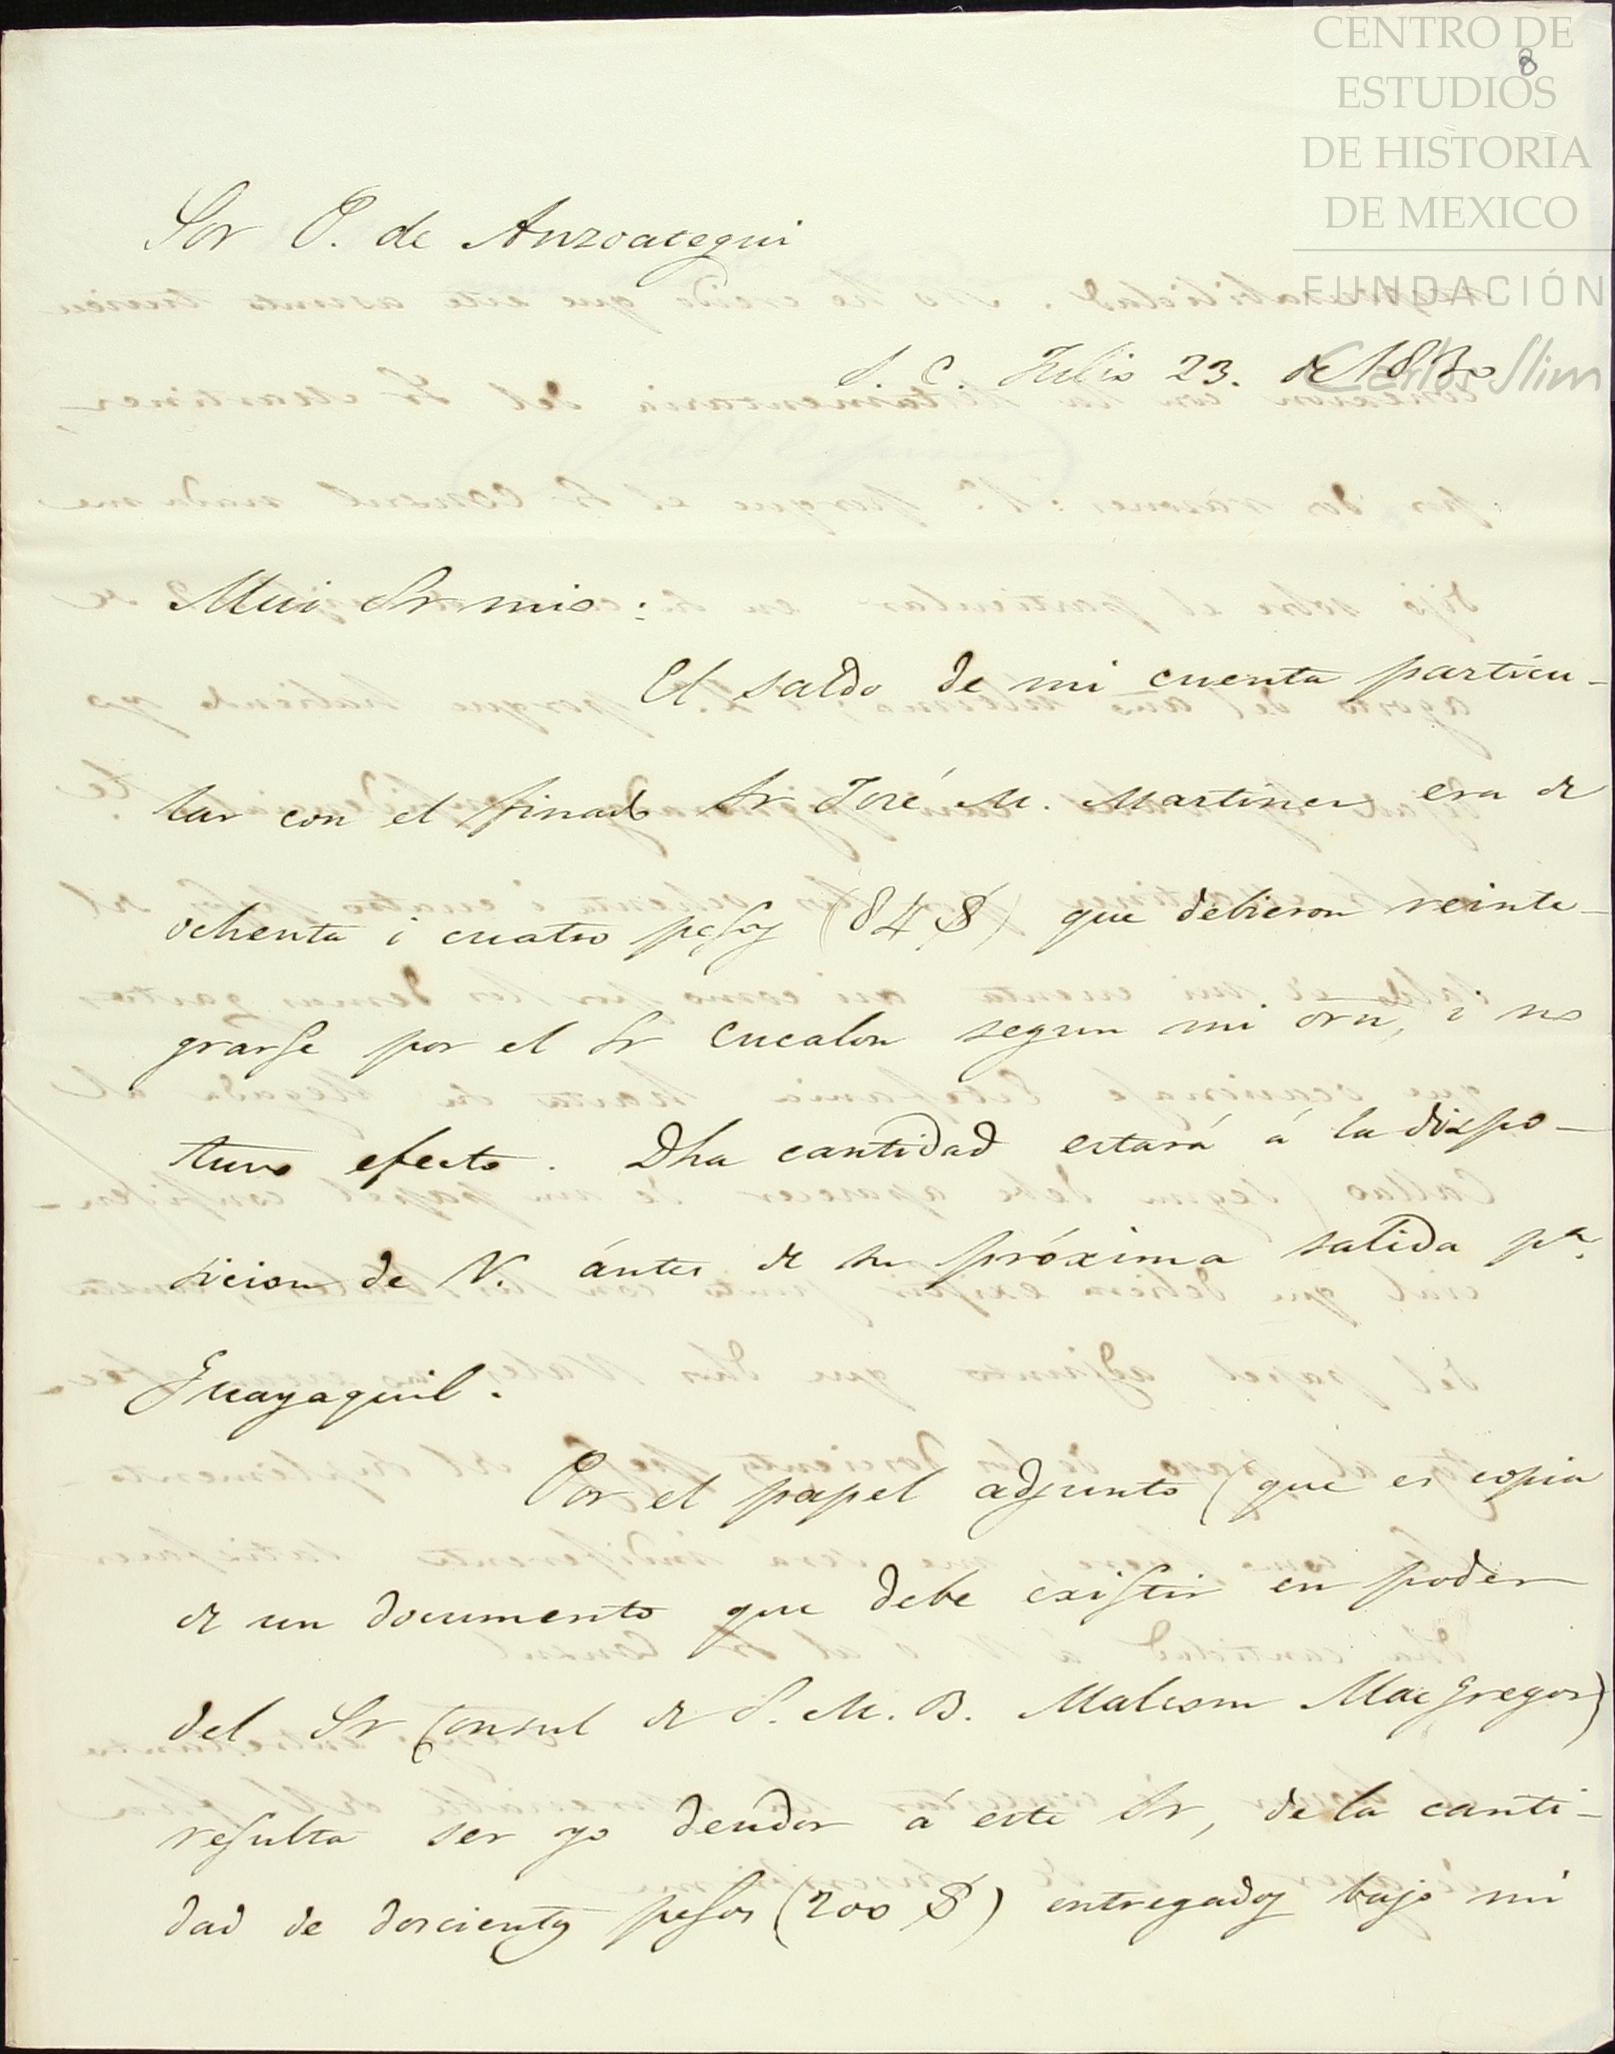 CENTRO DE
8
ESTUDIOS
DE HISTORIA
DE MEXICO
FUNDACIÓN
Carlos Slim
Sor P. de Anzoategui
S. C. Julio 23. de 1830
Mui Sr mio:
El saldo de mi cuenta particu-
lar con el finado Sr José M. Martinez era de
ochenta i cuatro pesos (84 $) que debieron reinte-
grarse por el Sr Cucalon segun mi orn, i no
tuvo efecto. Dha cantidad estará á la dispo-
sicion de V. ántes de su próxima salida pa.
Guayaquil.
Por el papel adjunto (que es copia
de un documento que debe existir en poder
del Sr Consul de S. M. B. Malcom MacGregor)
resulta ser yo deudor á este Sr, de la canti-
dad de doscientos pesos (200 $) entregados bajo mi